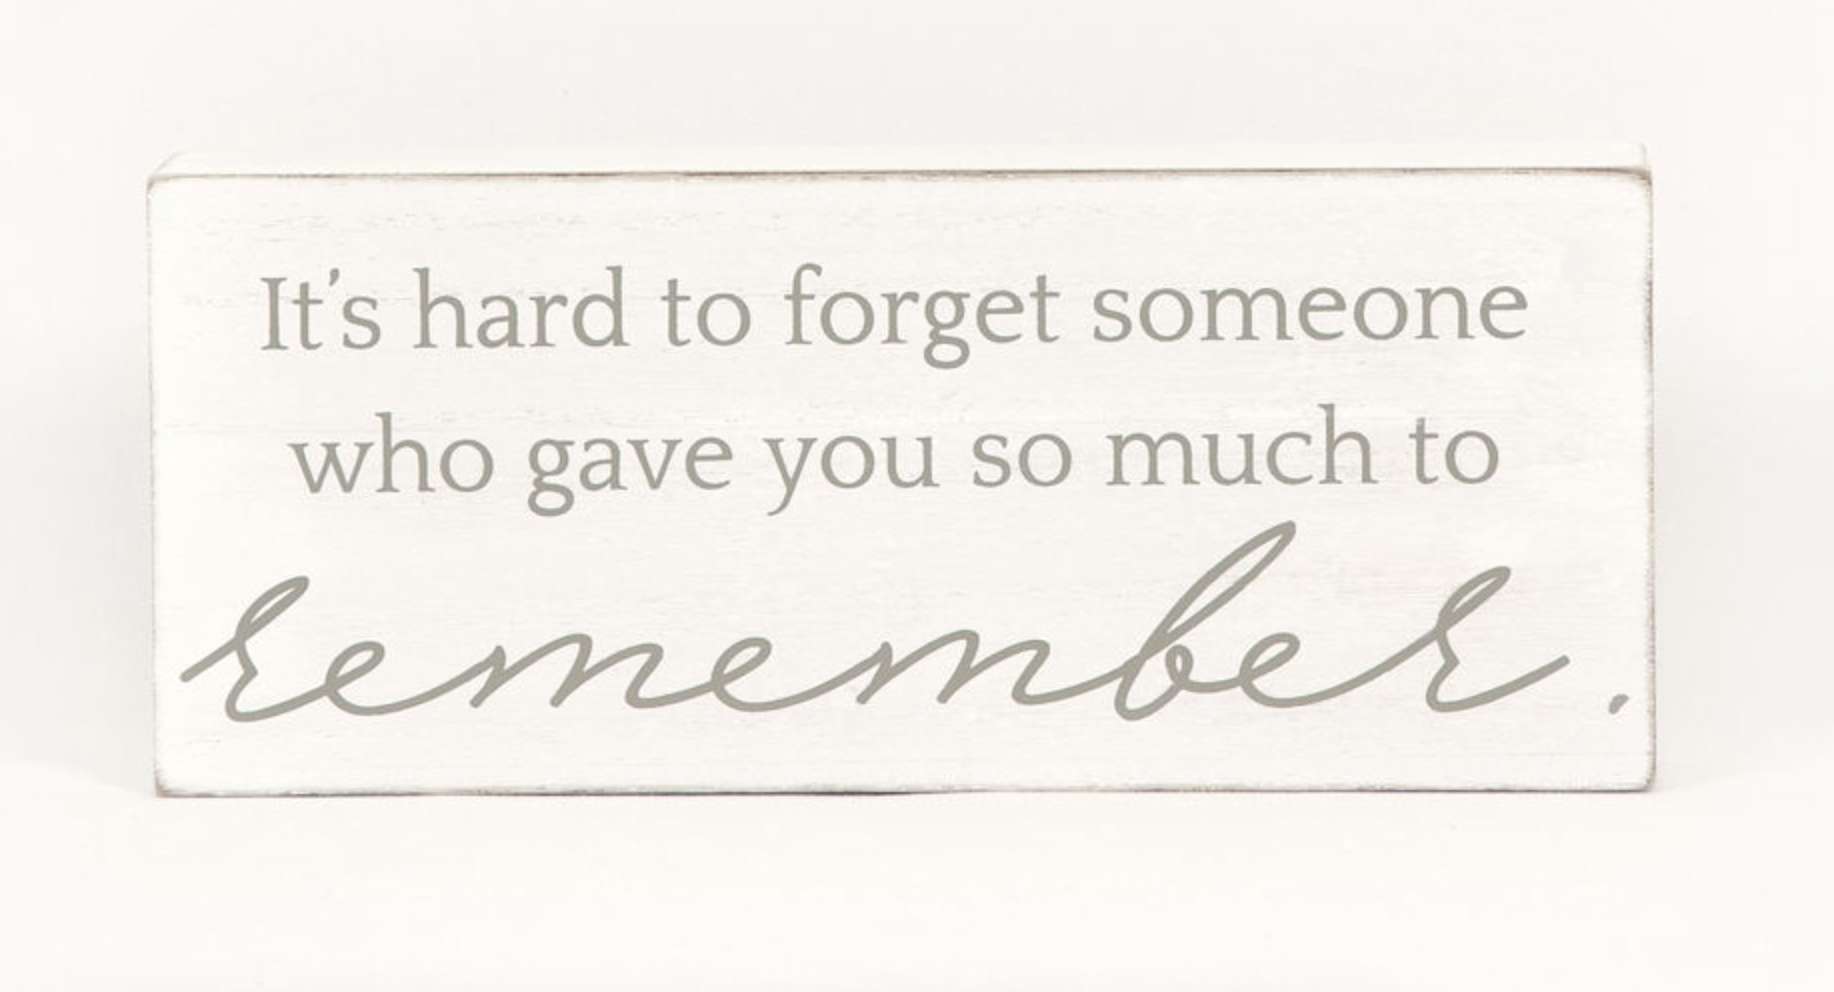 It's hard to forget someone
who gave you so much to
remember.